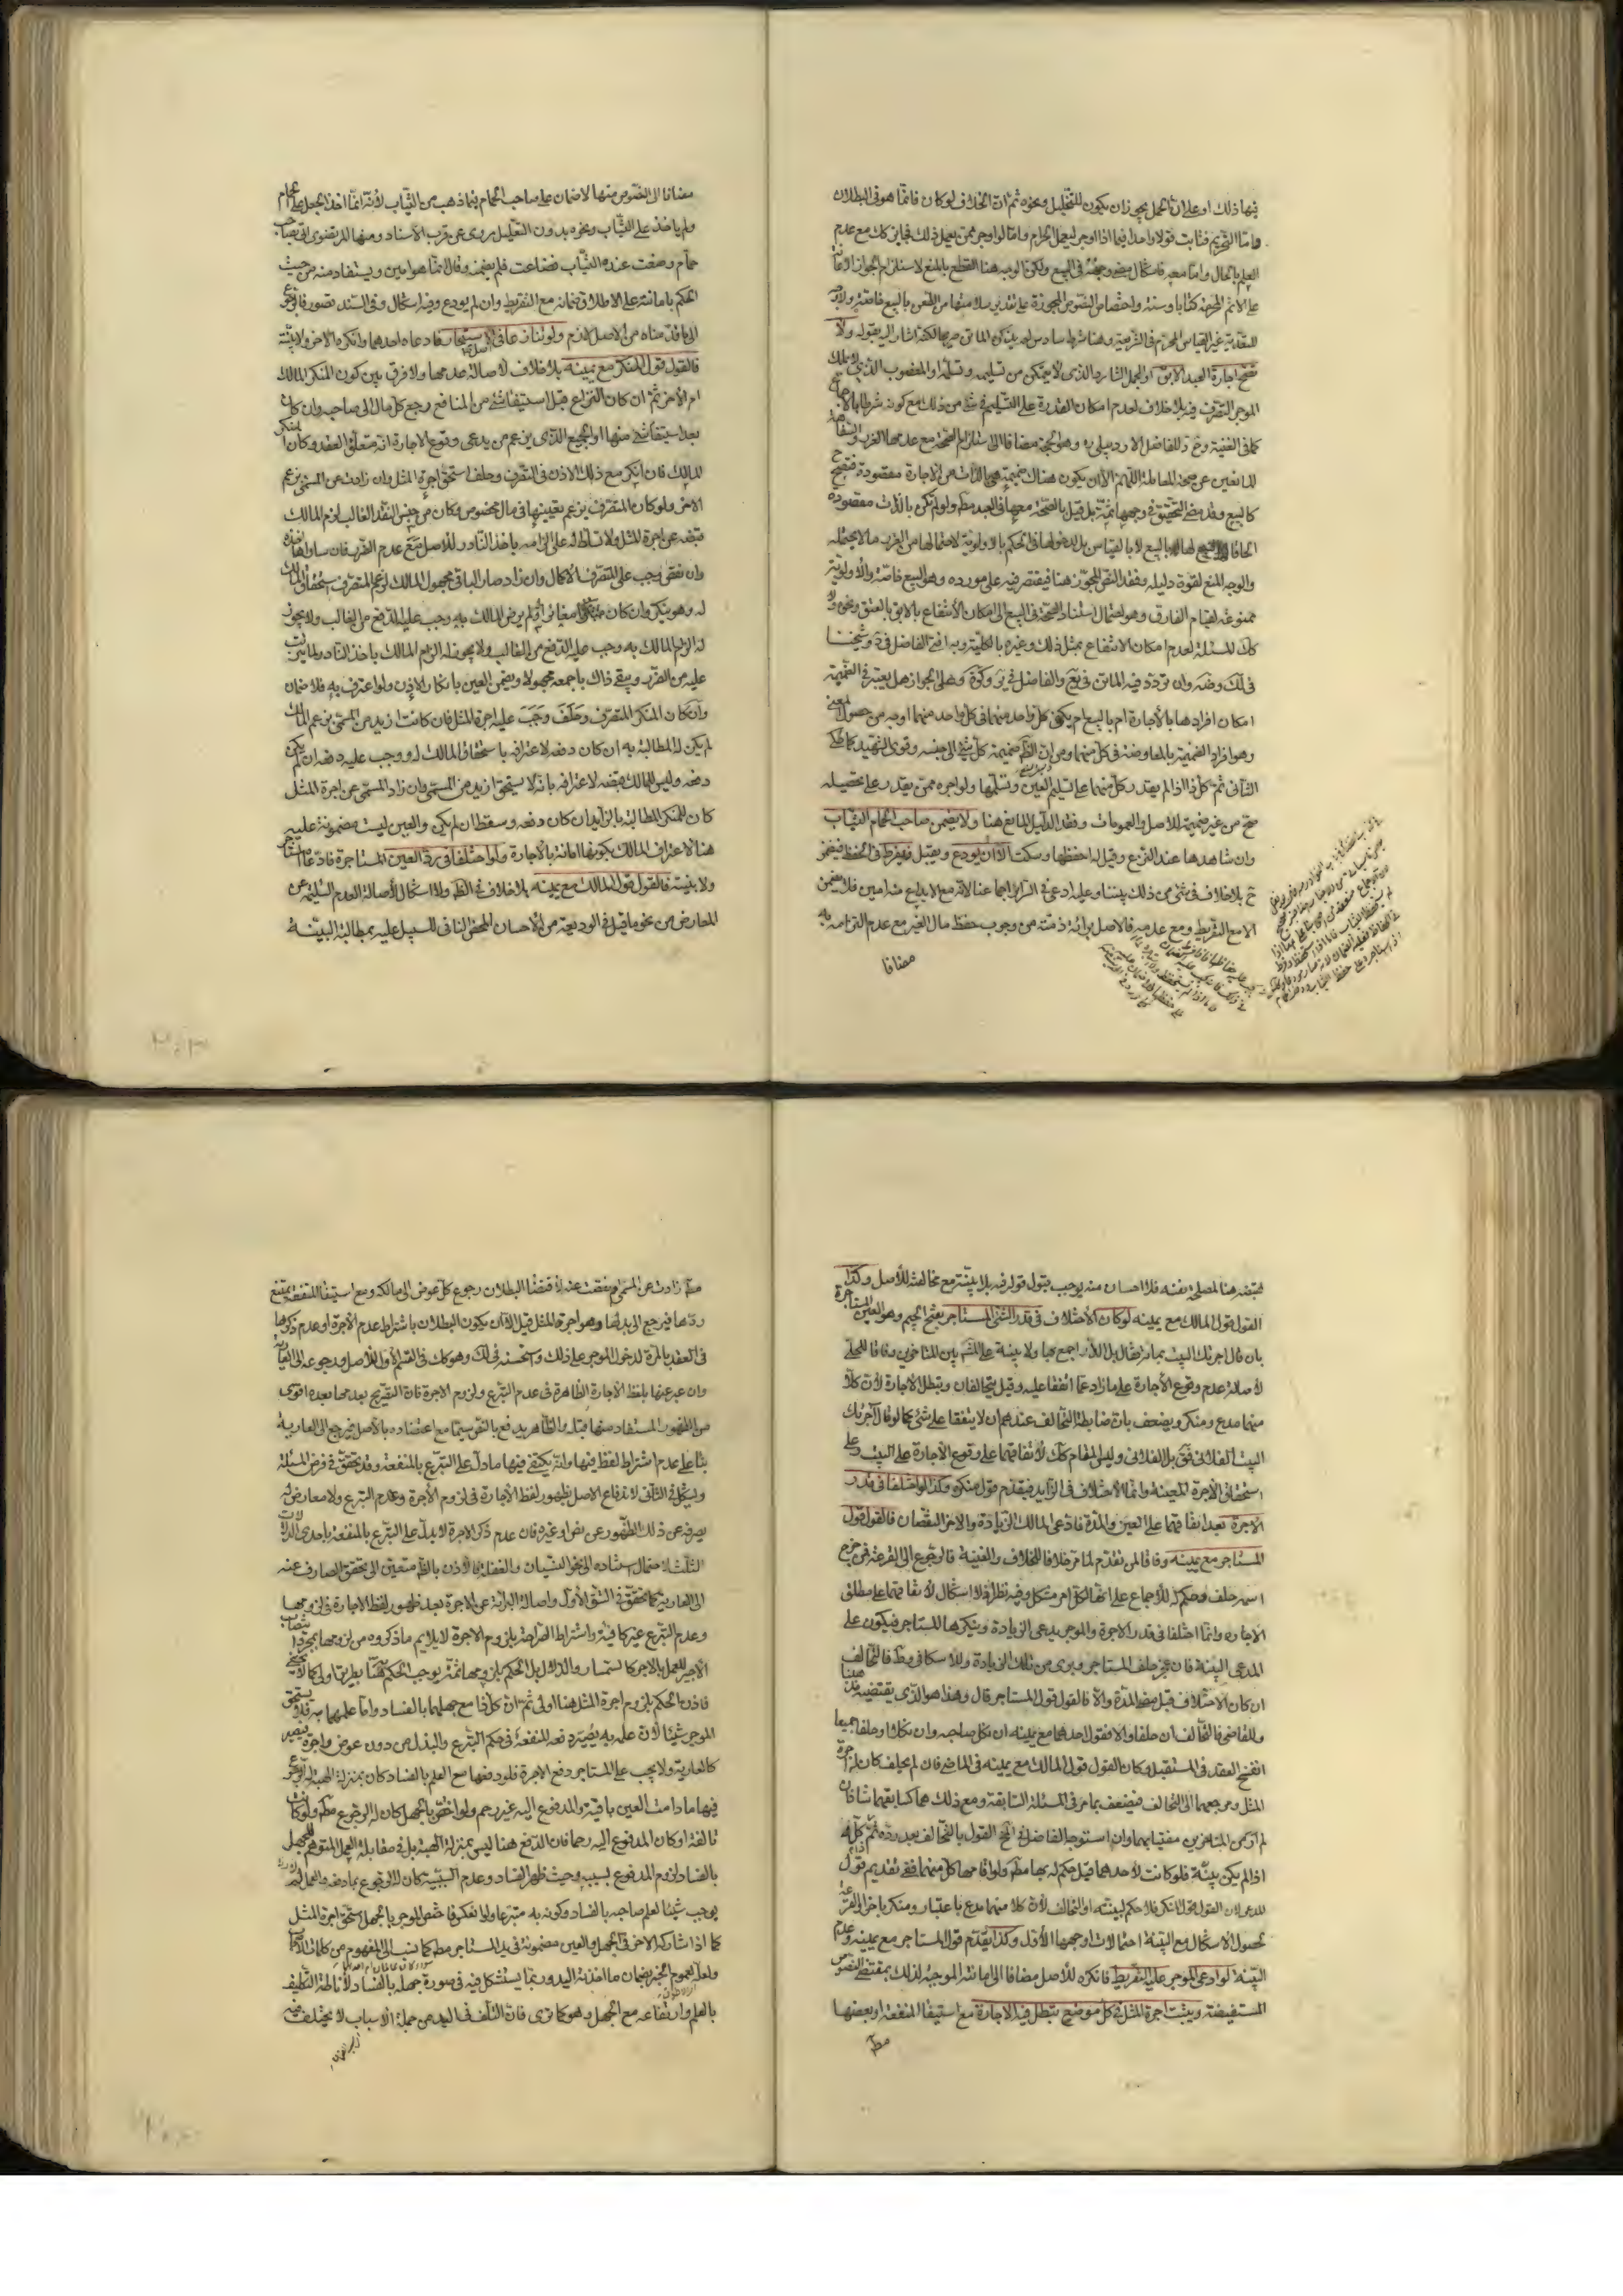 فيها ذلك او على ان الحمل يجوز ان يكون للتخليل ونحوه ثم ان الخلاف لو كان فانما هو في البطلان
فاما التحريم فثابت قولا واحدا فيما اذا اوجر لعمل الحرام واما لو اوجر ممن يعمل ذلك فجايز كك مع عدم
العلم بالحال واما معه فاشكال مضى وجهه في البيع ولكن الوجه هنا القطع بالمنع لاستلزام الجواز الاعانة
على الاثم المحرمة كتابا وسنة واختصاص النصوص المجوزة على تقدير سلامتها من النقص بالبيع خاصة ولا وجه
للتعدية غير القياس المحرم في الشريعة وهنا شرط سادس لم يذكره الماتن صريحا لكنه اشار اليه بقوله ولا
تصح اجارة العبد الابق او الجمل الشارد الذي لا يمكن من تسليمه وتسلمه او المغصوب الذي لا يملك
الموجر التصرف فيه بلا خلاف لعدم امكان القدرة على التسليم في شئ من ذلك مع كونه شرطا بالاجماع
كما في الغنية و للفاضل الاردبيلي ره وهو الحجة مضافا الى استلزام الصحة مع عدمها الغرر والسفاهة
المانعين عن صحة المعاملة اللهم الا ان يكون هناك ضميمة هي بالذات من الاجارة مقصودة فتصح ح
كالبيع وقد مضى التحقيق في وجهها ثمة بل قيل بالصحة معها في العبد مط ولو لم تكن بالذات مقصودة
الحاقا لها بالبيع لا بالقياس بل لدخولها في الحكم بالاولوية لاحتمالها من الغرر ما لا يحتمله
والوجه المنع لقوة دليله وفقد النص المجوز هنا فيقتصر فيه على مورده وهو البيع خاصة والاولوية
ممنوعة لقيام الفارق وهو احتمال استناد الصحة في البيع الى امكان الانتفاع بالابق بالعتق ونحوه ولا
كك المسئلة لعدم امكان الانتفاع بمثل ذلك وغيره بالكلية وبه افتى الفاضل في وشيخنا
في لك وضه وان تردد فيه الماتن في يع والفاضل في ير وكرة وهل على الجواز هل يعتبر في الضميمة
امكان افرادها بالاجارة ام بالبيع ام يكفي كل واحد منهما في كل واحد منهما اوجه من حصول المعنى
وهو افراد الضميمة بالمعاوضة في كل منهما ومن ان الظ ضميمة كل شئ الى جنسه وقوى الشهيد كما حكى
الثاني ثم كل ذا اذا لم يقدر كل منهما على تسليم العين وتسلمها ولو اجره ممن يقدر على تحصيله
صح من غير ضميمة للاصل والعمومات وفقد الدليل المانع هنا ولا يضمن صاحب الحمام الثياب
وان شاهدها عند النزع وقيل له احفظها وسكت الا ان يودع ويقبل فيفرط في الحفظ فيضمن
ح بلا خلاف في شئ من ذلك بيننا وعليه ادعى في السرائر اجماعنا لانه مع الايداع امين فلا يضمن
الا مع التفريط ومع عدمه فالاصل برائة ذمته من وجوب حفظ مال الغير مع عدم التزامه به
مضافا
مضافا الى النصوص منها لا ضمان على صاحب الحمام فيما ذهب من الثياب لانه انما اخذ الجعل على الحمام
ولم ياخذ على الثياب ونحوه بدون التعليل مروي عن قرب الاسناد ومنها المرتضوي اتى بصاحب
حمام وضعت عنده الثياب فضاعت فلم يضمنه وقال انما هو امين ويستفاد منه من حيث
الحكم بامانته على الاطلاق ضمانه مع التفريط وان لم يودع وفيه اشكال وفي السند قصور فالرجوع
الى ما قدمناه من الاصل لازم ولو تنازعا في الاستيجار فادعاه احدهما وانكره الاخر ولا بينة
فالقول قول المنكر مع يمينه بلا خلاف لاصالة عدمها ولا فرق بين كون المنكر المالك
ام الاخر ثم ان كان النزاع قبل استيفاء شئ من المنافع رجع كل مال الى صاحبه وان كان
بعد استيفاء شئ منها او الجميع الذي يزعم من يدعي وقوع الاجارة انه متعلق العقد وكان المنكر
المالك فان انكر مع ذلك الاذن في التصرف وحلف استحق اجرة المثل وان زادت عن المسمى بزعم
الاخر ولو كان المتصرف يزعم تعيينها في مال مخصوص وكان من جنس النقد الغالب لزم المالك
قبضه عن اجرة المثل ولا تسلط له على الزامه باخذ النادر للاصل مع عدم الضرر فان ساواها اخذه
وان نقص وجب على المتصرف الاكمال وان زاد صار الباقي مجهول المالك لزعم المتصرف استحقاق المالك
له وهو ينكر وان كان مغايرا ولم يرض المالك به وجب عليه الدفع من الغالب ولا يجوز
له الزام المالك به وجب عليه الدفع من الغالب ولا يجوز له الزام المالك باخذ النادر لما يترتب
عليه من الضرر ويبقى ذاك باجمعه مجهولا ويضمن العين بانكار الاذن ولو اعترف به فلا ضمان
وان كان المنكر المتصرف وحلف وجب عليه اجرة المثل فان كانت ازيد من المسمى بزعم المالك
لم يكن له المطالبة به ان كان دفعه لاعترافه باستحقاق المالك له ووجب عليه دفعه ان لم يكن
دفعه وليس للمالك قبضه لاعترافه بانه لا يستحق ازيد من المسمى وان زاد المسمى عن اجرة المثل
كان للمنكر المطالبة بالزايد ان كان دفعه وسقط ان لم يكن والعين ليست مضمونة عليه
هنا لاعتراف المالك بكونها امانة بالاجارة ولو اختلفا في رد العين المستاجرة فادعاه المستاجر
ولا بينة فالقول قول المالك مع يمينه بلا خلاف في الظ ولا اشكال لاصالة العدم السليمة عن
المعارض من نحو ما قيل في الوديعة من الاحسان المحض النافي للسبيل عليه بمطالبة البينة
لقبضه هنا لمصلحة نفسه فلا احسان منه يوجب قبول قوله فيه بلا بينة مع مخالفته للاصل وكذا
القول قول المالك مع يمينه لو كان الاختلاف في قدر الشئ المستاجر بفتح الجيم وهو العين المستاجرة
بان قال اجرتك البيت بمائة فقال بل الدار اجمع بها ولا بينة على الاشهر بين المتاخرين وفاقا للحلي
لاصالة عدم وقوع الاجارة على ما زاد عما اتفقا عليه وقيل يتحالفان وتبطل الاجارة لان كلا
منهما مدع ومنكر ويضعف بان ضابطة التحالف عندهم ان لا يتفقا على شئ كما لو قال آجرتك
البيت الفلاني فقال بل الفلاني وليس المقام كك لاتفاقهما على وقوع الاجارة على البيت وعلى
استحقاق الاجرة المعينة وانما الاختلاف في الزايد فيقدم قول منكره وكذا لو اختلفا في قدر
الاجرة بعد اتفاقهما على العين والمدة فادعى المالك الزيادة والاخر النقصان فالقول قول
المستاجر مع يمينه وفاقا لمن تقدم لما مر خلافا للخلاف والغنية فالرجوع الى القرعة فمن خرج
اسمه حلف وحكم له للاجماع على انها لكل امر مشكل وفيه نظر فلا اشكال لاتفاقهما على مطلق
الاجارة وانما اختلفا في قدر الاجرة والموجر يدعي الزيادة وينكرها المستاجر فيكون على
المدعي البينة فان عجز حلف المستاجر وبرى من تلك الزيادة وللاسكافي وط فالتحالف
ان كان الاختلاف قبل مضي المدة والا فالقول قول المستاجر قال وهذا هو الذي يقتضيه مذهبنا
وللقاضي فالتحالف ان حلفا والا فقول احدهما مع يمينه ان نكل صاحبه وان نكلا او حلفا جميعا
انفسخ العقد في المستقبل وكان القول قول المالك مع يمينه في الماضي فان لم يحلف كان له اجرة
المثل ومرجعهما الى التحالف فيضعف بما مر في المسئلة السابقة ومع ذلك هما كسابقهما شاذان
لم ار من المتاخرين مفتيا بهما وان استوجه الفاضل في القول بالتحالف بعد رده ثم كل ذا
اذا لم يكن بينة فلو كانت لاحدهما قيل حكم له بها مط ولو اقامها كل منهما ففي تقديم قول
المدعي لان القول قول المنكر فلا حكم لبينته او التحالف لان كلا منهما مدع باعتبار ومنكر باخر او القرعة
لحصول الاشكال مع البينة احتمالات اوجهها الاول وكذا يقدم قول المستاجر مع يمينه وعدم
البينة لو ادعى الموجر عليه التفريط فانكره للاصل مضافا الى امانته الموجبة لذلك بمقتضى النصوص
المستفيضة ويثبت اجرة المثل في كل موضع تبطل فيه الاجارة مع استيفاء المنفعة او بعضها
مط
مط زادت عن المسمى او نقصت عنه لاقتضاء البطلان رجوع كل عوض الى مالكه ومع استيفاء المنفعة يمتنع
ردها فيرجع الى بدلها وهو اجرة المثل قيل الا ان يكون البطلان باشتراط عدم الاجرة او عدم ذكرها
في العقد بالمرة لدخول الموجر على ذلك واستحسنه في لك وهو كك في القسم الاول للاصل ورجوعه الى العارية
وان عبر عنها بلفظ الاجارة الظاهرة في عدم التبرع ولزوم الاجرة فان التصريح بعدمها بعده اقوى
من الظهور المستفاد منها قبله والظاهر يدفع بالنص سيما مع اعتضاده بالاصل فيرجع الى العارية
بناء على عدم اشتراط لفظ فيها وانه يكتفى فيها ما دل على التبرع بالمنفعة وقد تحقق في فرض المسئلة
ويشكل في الثاني لاندفاع الاصل بظهور لفظ الاجارة في لزوم الاجرة وعدم التبرع ولا معارض له
يصرفه عن ذلك الظهور عن نص او غيره فان عدم ذكر الاجرة لا يدل على التبرع بالمنفعة باحدى الدلالات
الثلث لاحتمال استناده الى نحو النسيان والغفلة فالاذن بالظ متعين الى تحقق الصارف عنه
الى العارية كما تحقق في الشق الاول واصالة البرائة عن الاجرة بعد ظهور لفظ الاجارة في لزومها
وعدم التبرع غير كافية واشتراط الصراحة بلزوم الاجرة لا يلايم ما ذكروه من لزومها بمجرد انتصاب
الاجير للعمل بالاجر كالسمسار والدلال بل الحكم بلزومها ثمة يوجب الحكم به هنا بطريق اولى كما لا يخفى
فاذن الحكم بلزوم اجرة المثل هنا اولى ثم ان كل ذا مع جهلهما بالفساد واما علمهما به فلا يستحق
الموجر شيئا لان علمه به يصير دفعه للمنفعة في حكم التبرع والبذل من دون عوض واجرة فيصير
كالعارية ولا يجب على المستاجر دفع الاجرة فلو دفعها مع العلم بالفساد كان بمنزلة الهبة له الرجوع
فيها ما دامت العين باقية والمدفوع اليه غير رحم ولو اختص بالجهل كان له الرجوع مط ولو كانت
تالفة او كان المدفوع اليه رحما فان الدفع هنا ليس بمنزلة الهبة بل في مقابلة العمل المتوهم للجهل
بالفساد لزوم المدفوع بسببه وحيث ظهر الفساد وعدم السببية كان له الرجوع بما دفعه والعمل لا
يوجب شيئا لعلم صاحبه بالفساد وكونه به متبرعا ولو انعكس فاختص الموجر بالجهل استحق اجرة المثل
كما اذا شاركه الاخر في الجهل والعين مضمونة في يد المستاجر مط كما ينسب الى المفهوم من كلمات الاصحاب
ولعله لعموم الخبر بضمان ما اخذته اليد وربما يستشكل فيه في صورة جهله بالفساد لاناطة التكليف
بالعلم وارتفاعه مع الجهل وهو كما ترى فان التلف في اليد من جملة الاسباب لا يختلف فيه